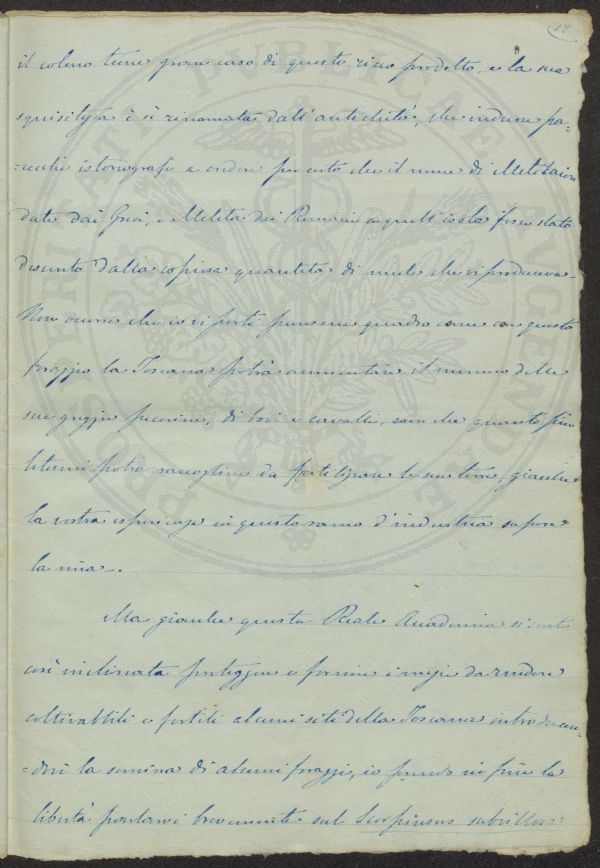 17
il colono tiene gran caso di questo ricco prodotto, e la sua
squisitezza è sì rinomata dall'antichità, che indusse pa-
=recchi istoriografi a credere per certo che il nome di
dato dai Greci, e Melita dai Romani a quell'isola fosse stato
desunto dalla copiosa quantità di miele che vi produceva=
Non occorre che io vi porti pure un quadro come con questo
foraggio la Toscana potrà aumentare il numero delle
sue greggie pecorine, di bovi e cavalli, non che quanto più
letami potrà raccogliere da fertilizzare le sue terre, giacchè
la vostra esperienza in questo ramo d'industria supera
la mia.
Ma giacche questa Reale Accademia si sente
così inclinata proteggere e fornire i mezzi da rendere
coltivabbili e fertili alcuni siti della Toscana introducen-
=dovi la semina di alcuni foraggi, io prendo in fine la
libertà parlarvi brevemente sul
PRO VERITATE